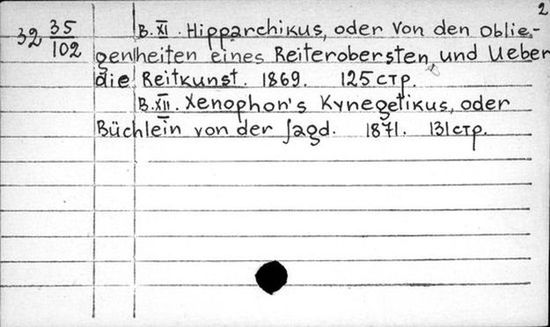 2
32 35/102 B. XI. Hipparchikus, oder Von den Oblie-
genheiten eines Reiterobersten, und Ueber
die Reitkunst. 1869. 125 стр.
B. XII. Xenophon's Kynegetikus, oder
Büchlein von der Jagd. 1871. 131 стр.